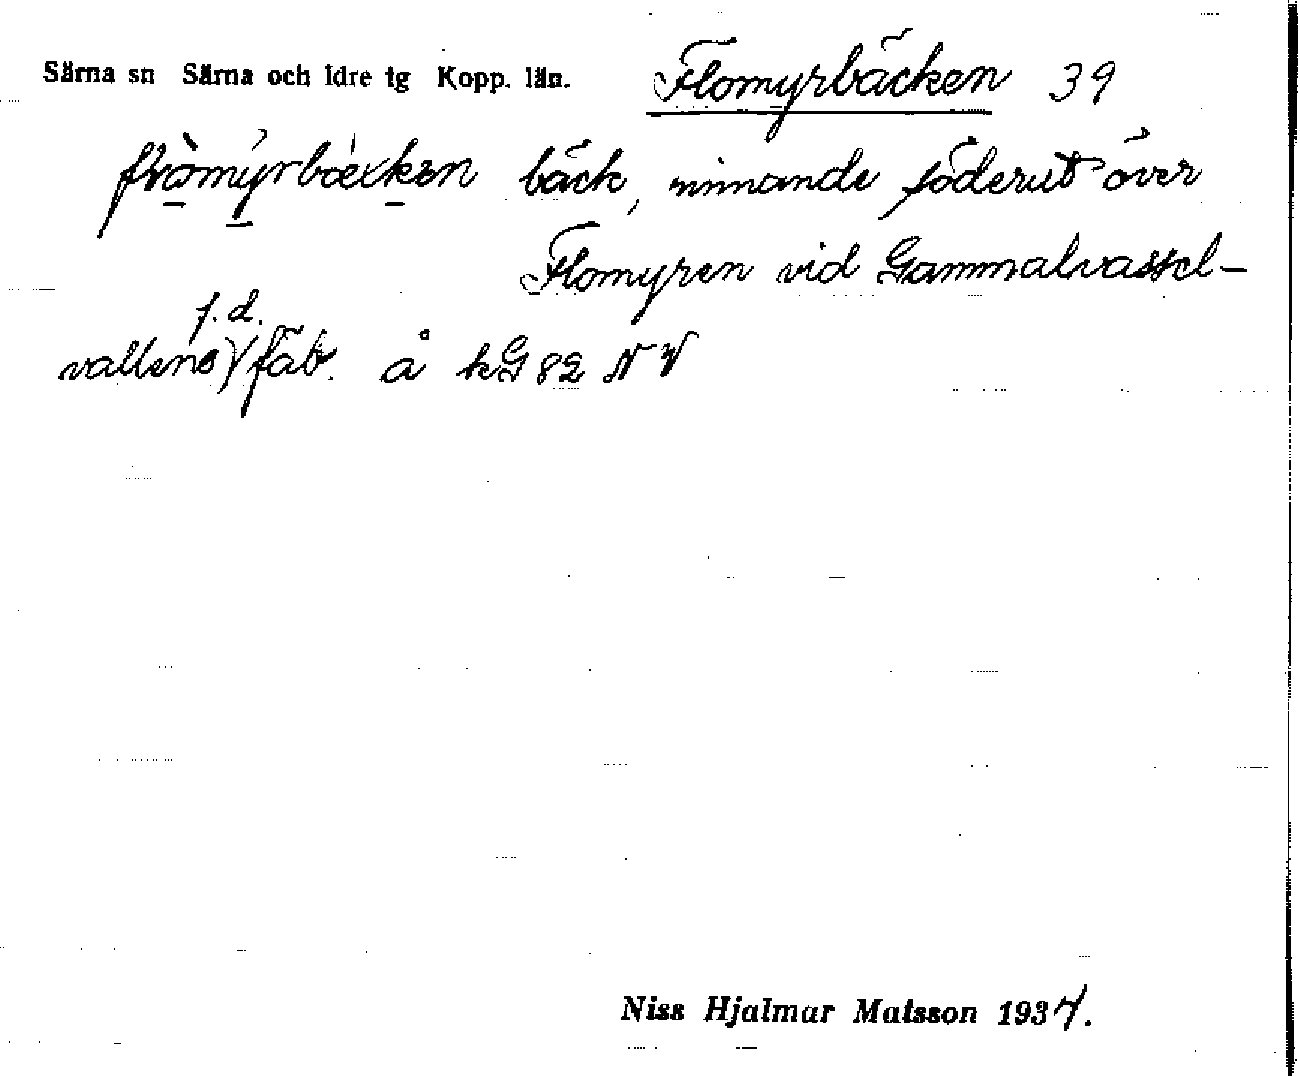 Särna sn Särna och Idre tg Kopp. län. Flomyrbäcken 39
bäck, rinnande söderut över
Flomyren vid Gammalvassel-
vallens f.d. fäb. å kG 82 NV
Niss Hjalmar Matsson 1934.